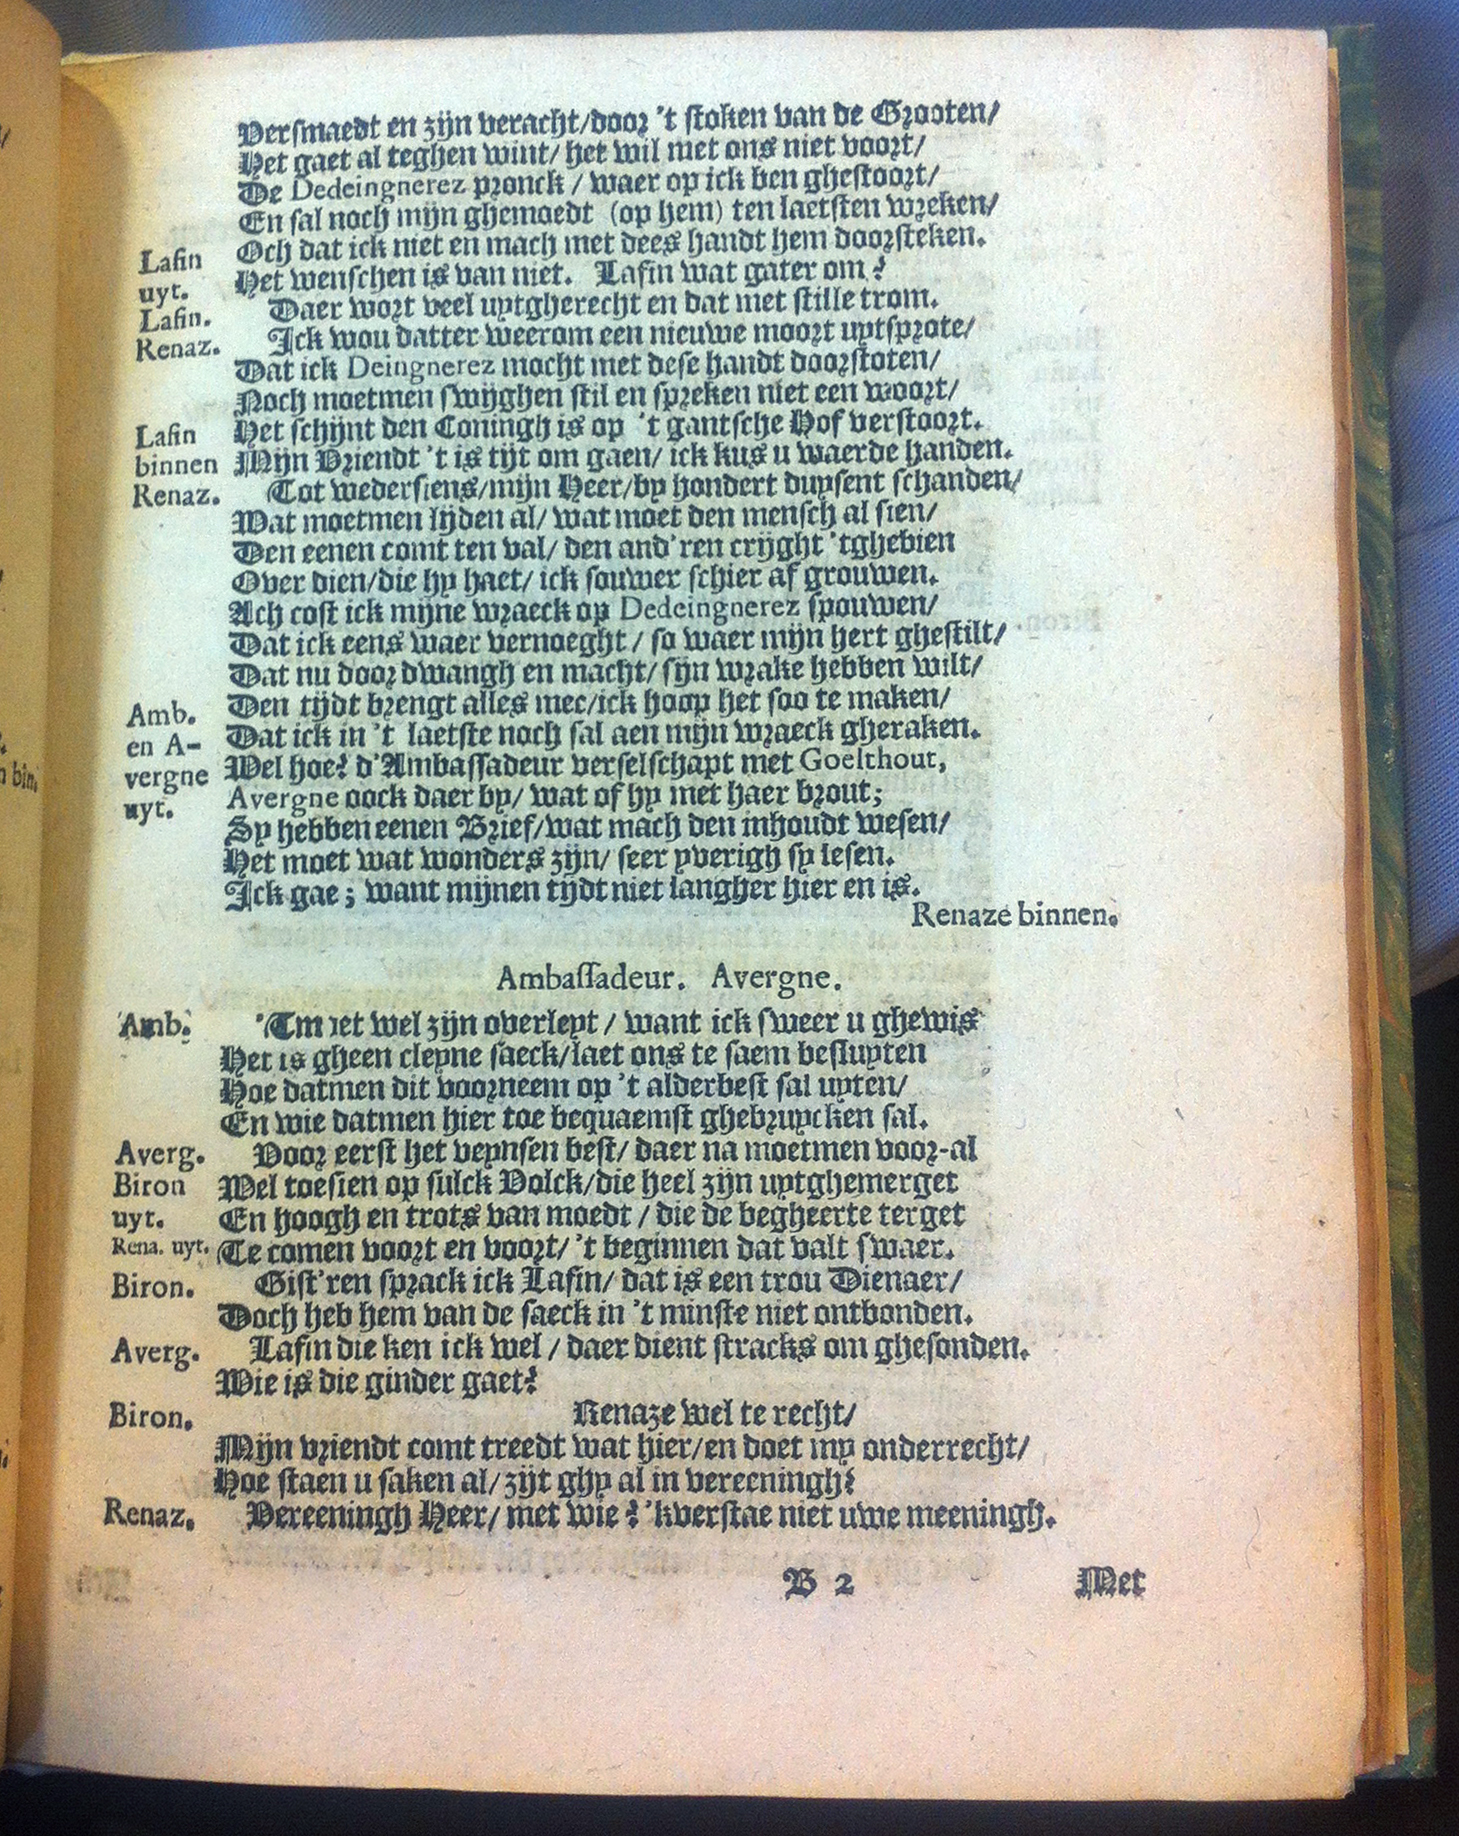 Versmaedt en zijn veracht/door 't stoken van de Grooten/
Het gaet al teghen wint/ het wil met ons niet voort/
De Dedeingnerez pronck / waer op ick ben ghestoort/
En sal noch mijn ghemoedt (op hem) ten laetsten wreken/
Och dat ick niet en mach met dees handt hem doorsteken.
Lafin uyt. Het wenschen is van niet. Lafin wat gater om?
Lafin. Daer wort veel uytgherecht en dat met stille trom.
Renaz. Ick wou datter weerom een nieuwe moort uytsprote/
Dat ick Deingnerez mocht met dese handt doorstoten/
Noch moetmen swijghen stil en spreken niet een woort/
Het schijnt den Coningh is op 't gantsche Hof verstoort.
Lafin binnen Mijn Vriendt 't is tijt om gaen/ ick kus u waerde handen.
Renaz. Tot wedersiens/mijn Heer/by hondert duysent schanden/
Wat moetmen lijden al/ wat moet den mensch al sien/
Den eenen comt ten val/ den and'ren crijght 'tghebien
Over dien/die hy haet/ ick souwer schier af grouwen.
Ach cost ick mijne wraeck op Dedeingnerez spouwen/
Dat ick eens waer vernoeght / so waer mijn hert ghestilt/
Dat nu door dwangh en macht/ sijn wrake hebben wilt/
Den tijdt brengt alles mee/ick hoop het soo te maken/
Dat ick in 't laetste noch sal aen mijn wraeck gheraken.
Amb. en A-vergne uyt. Wel hoe? d'Ambassadeur verselschapt met Goelthout,
Avergne oock daer by/ wat of hy met haer brout;
Sy hebben eenen Brief/wat mach den inhoudt wesen/
Het moet wat wonders zijn/ seer yverigh sy lesen.
Ick gae; want mijnen tijdt niet langher hier en is.
Renaze binnen.
Ambassadeur. Avergne.
Amb. 'Tmoet wel zijn overleyt / want ick sweer u ghewis
Het is gheen cleyne saeck/laet ons te saem besluyten
Hoe datmen dit voorneem op 't alderbest sal uyten/
En wie datmen hier toe bequaemst ghebruycken sal.
Averg. Voor eerst het veynsen best/ daer na moetmen voor-al
Biron uyt. Wel toesien op sulck Volck/die heel zijn uytghemerget
En hoogh en trots van moedt / die de begheerte terget
Rena. uyt. Te comen voort en voort/ 't beginnen dat valt swaer.
Biron. Gist'ren sprack ick Lafin/ dat is een trou Dienaer/
Doch heb hem van de saeck in 't minste niet ontbonden.
Averg. Lafin die ken ick wel / daer dient stracks om ghesonden.
Wie is die ginder gaet?
Biron. Renaze wel te recht/
Mijn vriendt comt treedt wat hier/en doet my onderrecht/
Hoe staen u saken al/ zijt ghy al in vereeningh?
Renaz. Vereeningh Heer/ met wie? 'kverstae niet uwe meeningh.
B 2 Met